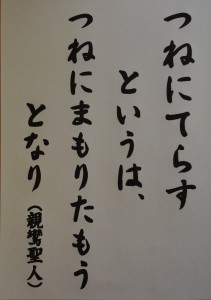 つねにてらす
というは、
つねにまもりたもう
となり（親鸞聖人）